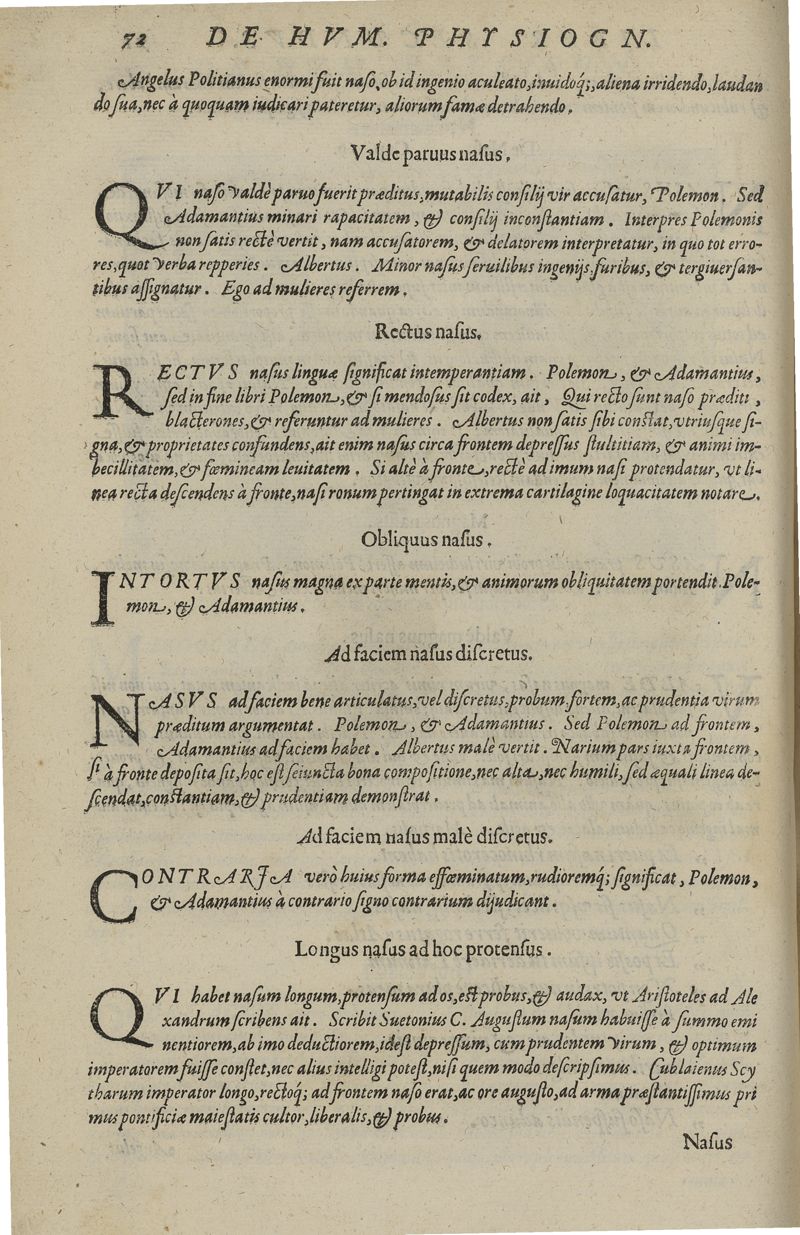 72 DE HVM. PHYSIOGN.
Angelus Politianus enormi fuit naſo, ob id ingenio aculeato, inuidoq́;, aliena irridendo, laudan
do ſua, nec à quoquam iudicari pateretur, aliorum famæ detrahendo.
Valde paruus naſus.
QVI naſo valdè paruo fuerit præditus, mutabilis conſilij vir accuſatur, Polemon. Sed
Adamantius minari rapacitatem, & conſilij inconſtantiam. Interpres Polemonis
non ſatis rectè vertit, nam accuſatorem, & delatorem interpretatur, in quo tot erro-
res, quot verba repperies. Albertus. Minor naſus ſeruilibus ingenijs, furibus, & tergiuerſan-
tibus aſſignatur. Ego ad mulieres referrem.
Rectus naſus.
RECTVS naſus linguæ ſignificat intemperantiam. Polemon, & Adamantius,
ſed in fine libri Polemon, & ſi mendoſus ſit codex, ait, Qui recto ſunt naſo præditi,
blacterones, & referuntur ad mulieres. Albertus non ſatis ſibi conſtat, vtriuſque ſi-
gna, & proprietates confundens, ait enim naſus circa frontem depreſſus ſtultitiam, & animi im-
becillitatem, & fœmineam leuitatem. Si altè à fronte, rectè ad imum naſi protendatur, vt li-
nea recta deſcendens à fronte, naſi ronum pertingat in extrema cartilagine loquacitatem notare.
Obliquus naſus.
INTORTVS naſus magna ex parte mentis, & animorum obliquitatem portendit. Pole-
mon, & Adamantius.
Ad faciem naſus diſcretus.
NASVS ad faciem bene articulatus, vel diſcretus, probum, fortem, ac prudentia virum
præditum argumentat. Polemon, & Adamantius. Sed Polemon ad frontem,
Adamantius ad faciem habet. Albertus malè vertit. Narium pars iuxta frontem,
ſi à fronte depoſita ſit, hoc eſt ſeiuncta bona compoſitione, nec alta, nec humili, ſed æquali linea de-
ſcendat, conſtantiam, & prudentiam demonſtrat.
Ad faciem naſus malè diſcretus.
CONTRARIA verò huius forma effœminatum, rudioremq́; ſignificat, Polemon,
& Adamantius à contrario ſigno contrarium dijudicant.
Longus naſus ad hoc protenſus.
QVI habet naſum longum, protenſum ad os, eſt probus, & audax, vt Ariſtoteles ad Ale
xandrum ſcribens ait. Scribit Suetonius C. Auguſtum naſum habuiſſe à ſummo emi
nentiorem, ab imo deductiorem, ideſt depreſſum, cum prudentem virum, & optimum
imperatorem fuiſſe conſtet, nec alius intelligi poteſt, niſi quem modo deſcripſimus. Cublaienus Scy
tharum imperator longo, rectoq́; ad frontem naſo erat, ac ore auguſto, ad arma præſtantiſſimus pri
mus pontificiæ maieſtatis cultor, liberalis, & probus.
Naſus